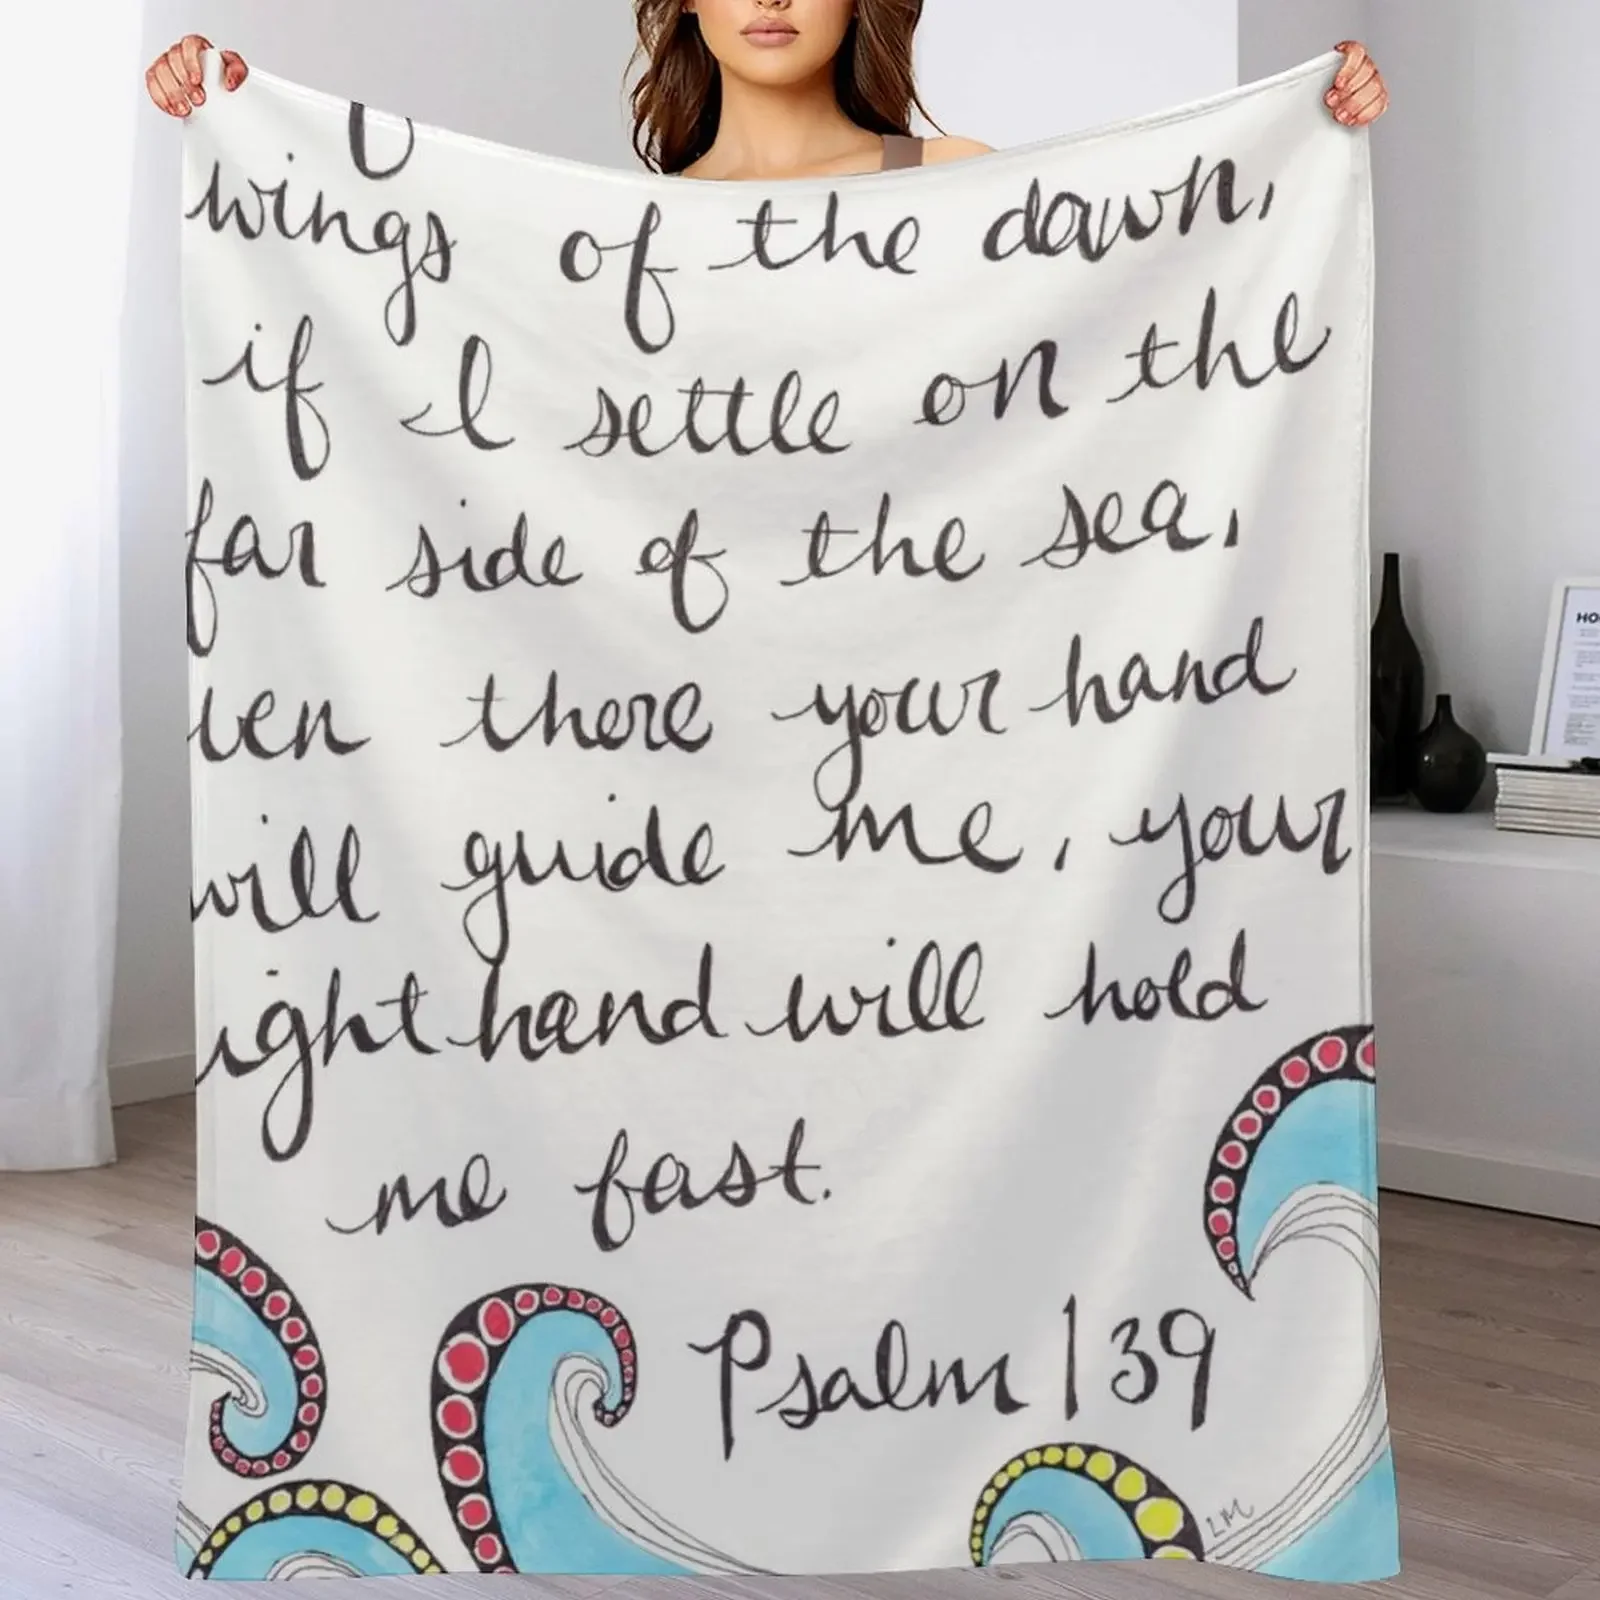 wings of the dawn,
if I settle on the
far side of the sea,
ven there your hand
will guide me, your
ight hand will hold
me fast.
Psalm 139
LM
HO